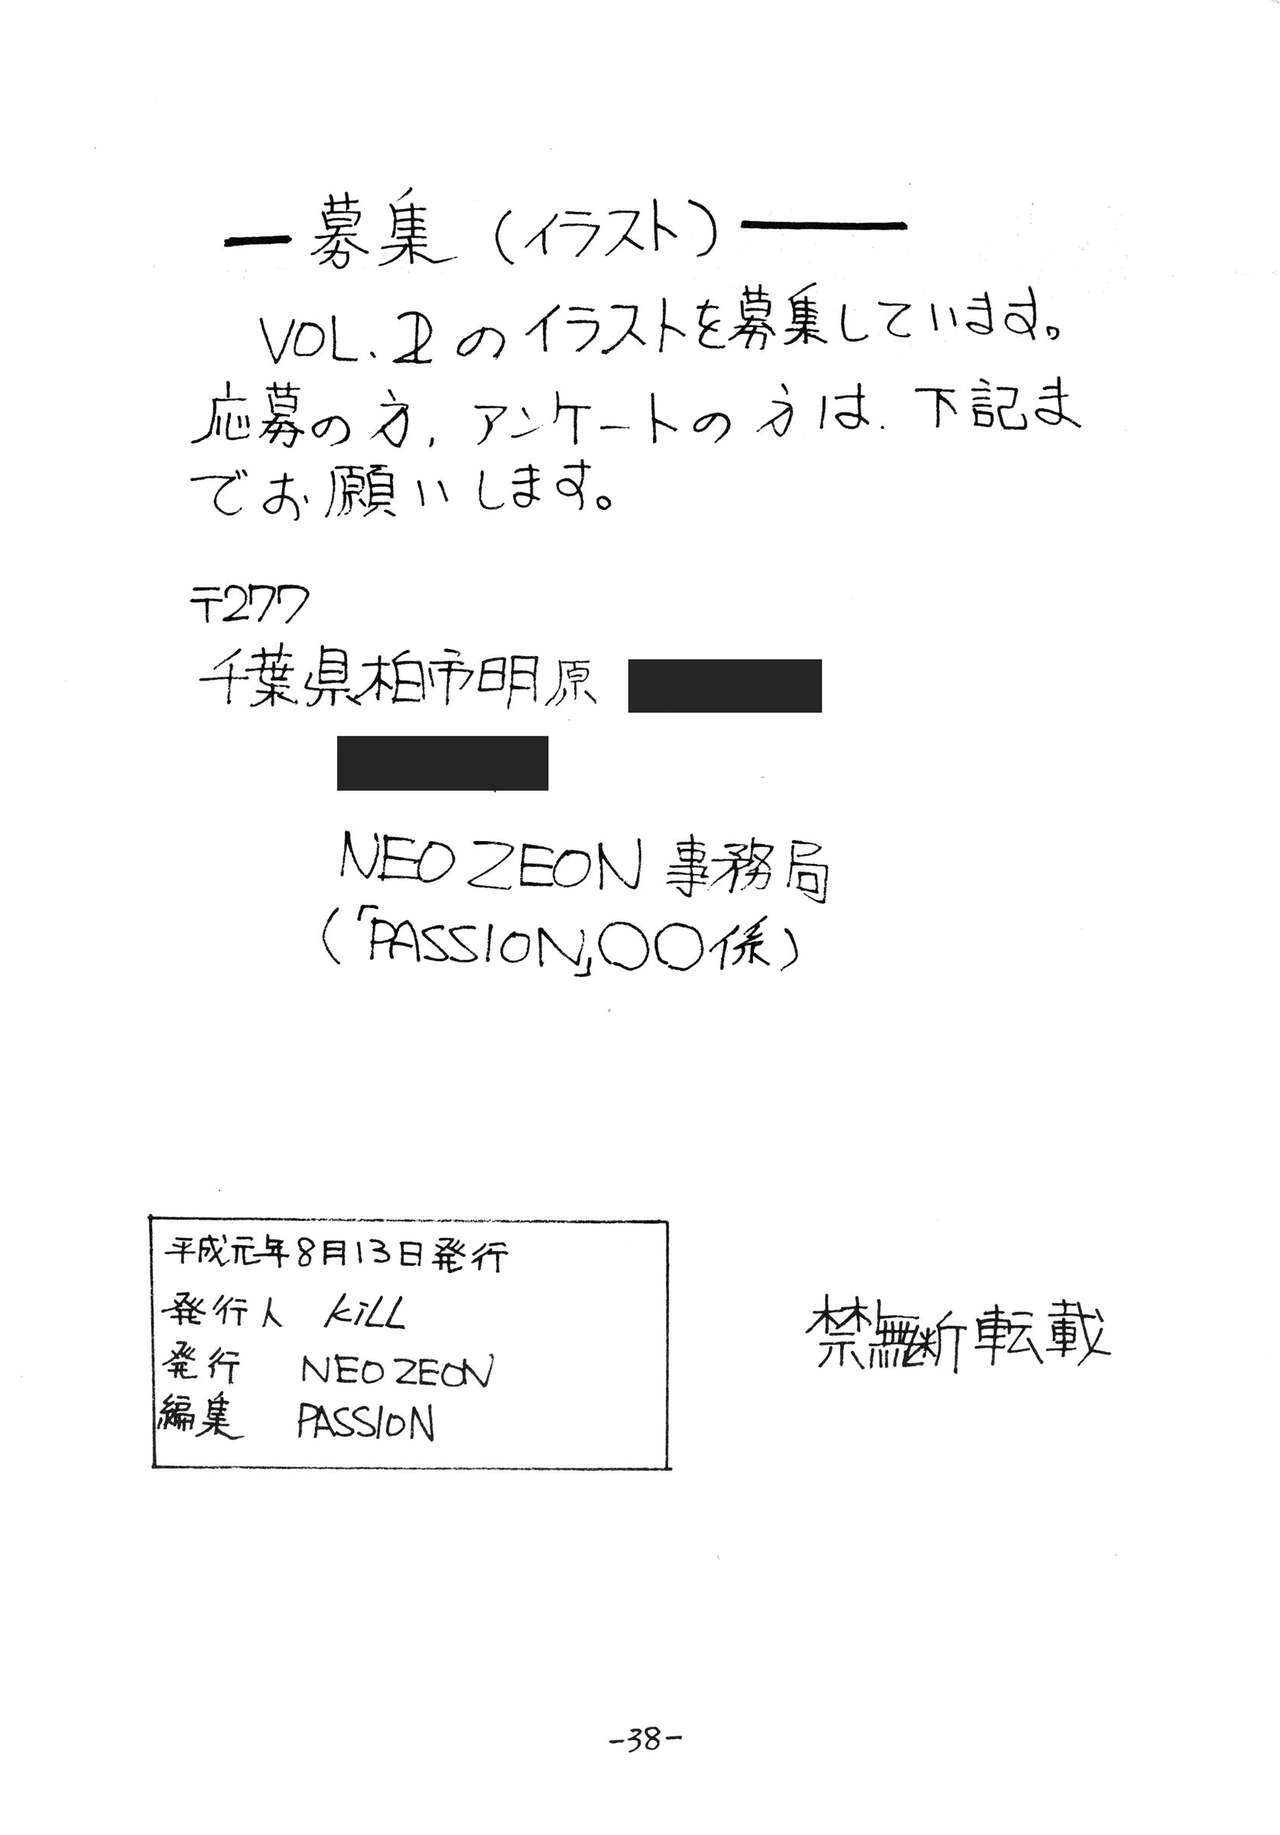 募集（イラスト）
VOL.2のイラストを募集しています。
応募の方，アンケートの方は，下記ま
でお願いします。
〒277
千葉県柏市明原
NEO ZEON 事務局
（「PASSION」〇〇係）
平成元年8月13日発行
発行人 KiLL
発行 NEO ZEON
編集 PASSION
禁無断転載
-38-